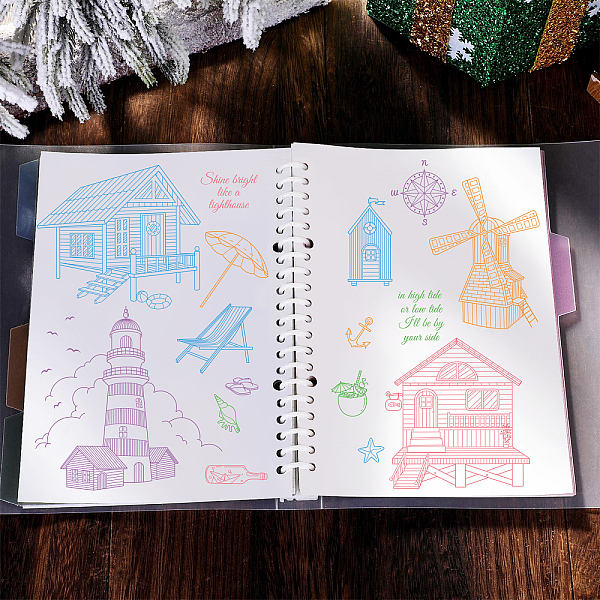 Shine bright
like a
lighthouse
n
w
E
S
in high tide
or low tide
I'll be by
your side